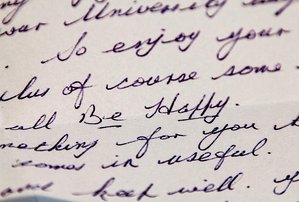 our University
. So enjoy your
plus of course some
all Be Happy.
for you
in useful.
keep well.